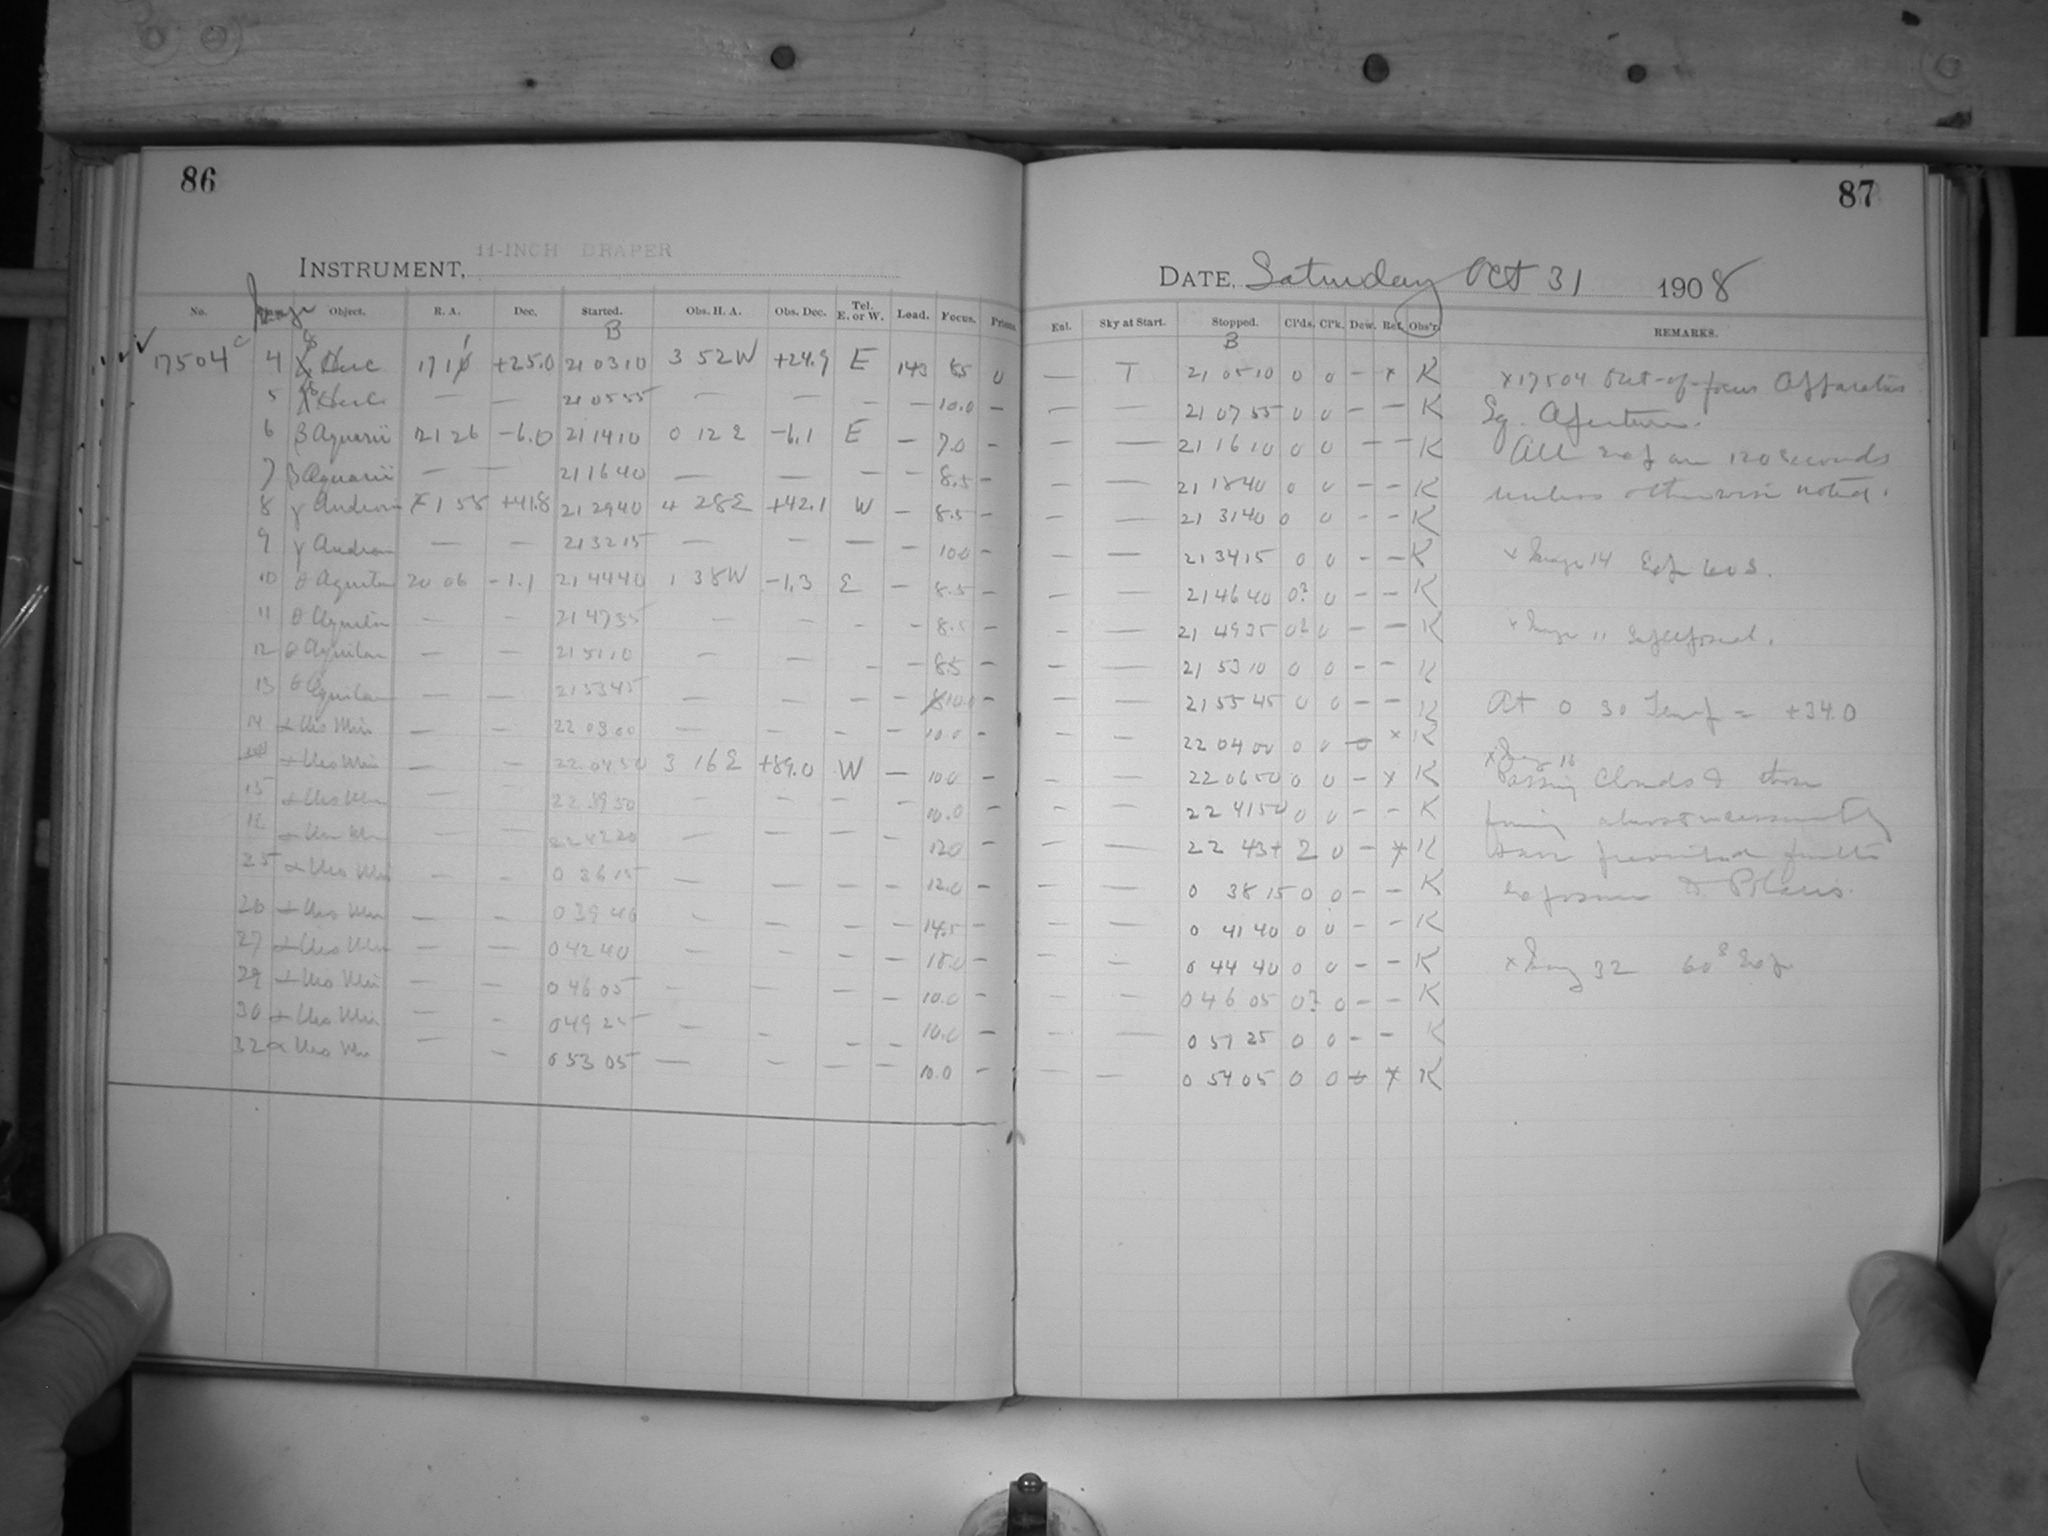 86
11-INCH DRAPER
INSTRUMENT,
No. Image Object. R. A. Dec. Started. Obs. H. A. Obs. Dec. Tel. E. or W. Load. Focus. Prisms
B
17504 c 4 δ Herc 17 1 +25.0 21 03 10 3 52 W +24.9 E 143 85 0
5 Herc — — 21 05 55 — — — — 10.0 —
6 β Aquarii 21 26 -6.0 21 14 10 0 12 E -6.1 E — 7.0 —
7 β Aquarii — — 21 16 40 — — — — 8.5 —
8 γ Androm 1 58 +41.8 21 29 40 4 28 E +42.1 W — 8.5 —
9 γ Androm — — 21 32 15 — — — — 10.0 —
10 θ Aquilae 20 06 -1.1 21 44 40 1 38 W -1.3 E — 8.5 —
11 θ Aquilae — — 21 47 35 — — — — 8.5 —
12 θ Aquilae — — 21 51 10 — — — — 8.5 —
13 θ Aquilae — — 21 53 45 — — — — 10.0 —
14 α Urs Min — — 22 03 00 — — — — 10.0 —
α Urs Min — — 22 04 50 3 16 E +89.0 W — 10.0 —
15 α Urs Min — — 22 39 50 — — — — 10.0 —
16 α Urs Min — — 22 42 20 — — — — 12.0 —
25 α Urs Min — — 0 36 15 — — — — 12.0 —
26 α Urs Min — — 0 39 40 — — — — 14.5 —
27 α Urs Min — — 0 42 40 — — — — 18.0 —
29 α Urs Min — — 0 46 05 — — — — 10.0 —
30 α Urs Min — — 0 49 25 — — — — 10.0 —
32 α Urs Min — — 0 53 05 — — — — 10.0 —
87
DATE, Saturday Oct 31 1908
Enl. Sky at Start. Stopped. Cl'ds. Cl'k. Dew. Ref. Obs'r. REMARKS.
B
— T 21 05 10 0 0 — x K x 17504 Out-of-focus Apparatus
— — 21 07 55 0 0 — — K Sq. Aperture.
— — 21 16 10 0 0 — — K All exp are 120 seconds
— — 21 18 40 0 0 — — K unless otherwise noted.
— — 21 31 40 0 0 — — K
— — 21 34 15 0 0 — — K x Image 14 Exp 60 s.
— — 21 46 40 0? 0 — — K
— — 21 49 35 0? 0 — — K x Image 11
— — 21 53 10 0 0 — — K
— — 21 55 45 0 0 — — K At 0 30 Temp = +34.0
— — 22 04 00 0 0 — x K
— — 22 06 50 0 0 — x K Passing Clouds &
— — 22 41 50 0 0 — — K
— — 22 43+ 2 0 — x K have prevented further
— — 0 38 15 0 0 — — K exposures Polaris.
— — 0 41 40 0 0 — — K
— — 0 44 40 0 0 — — K x Image 32 60s Exp
— — 0 46 05 0? 0 — — K
— — 0 51 25 0 0 — — K
— — 0 54 05 0 0 x K